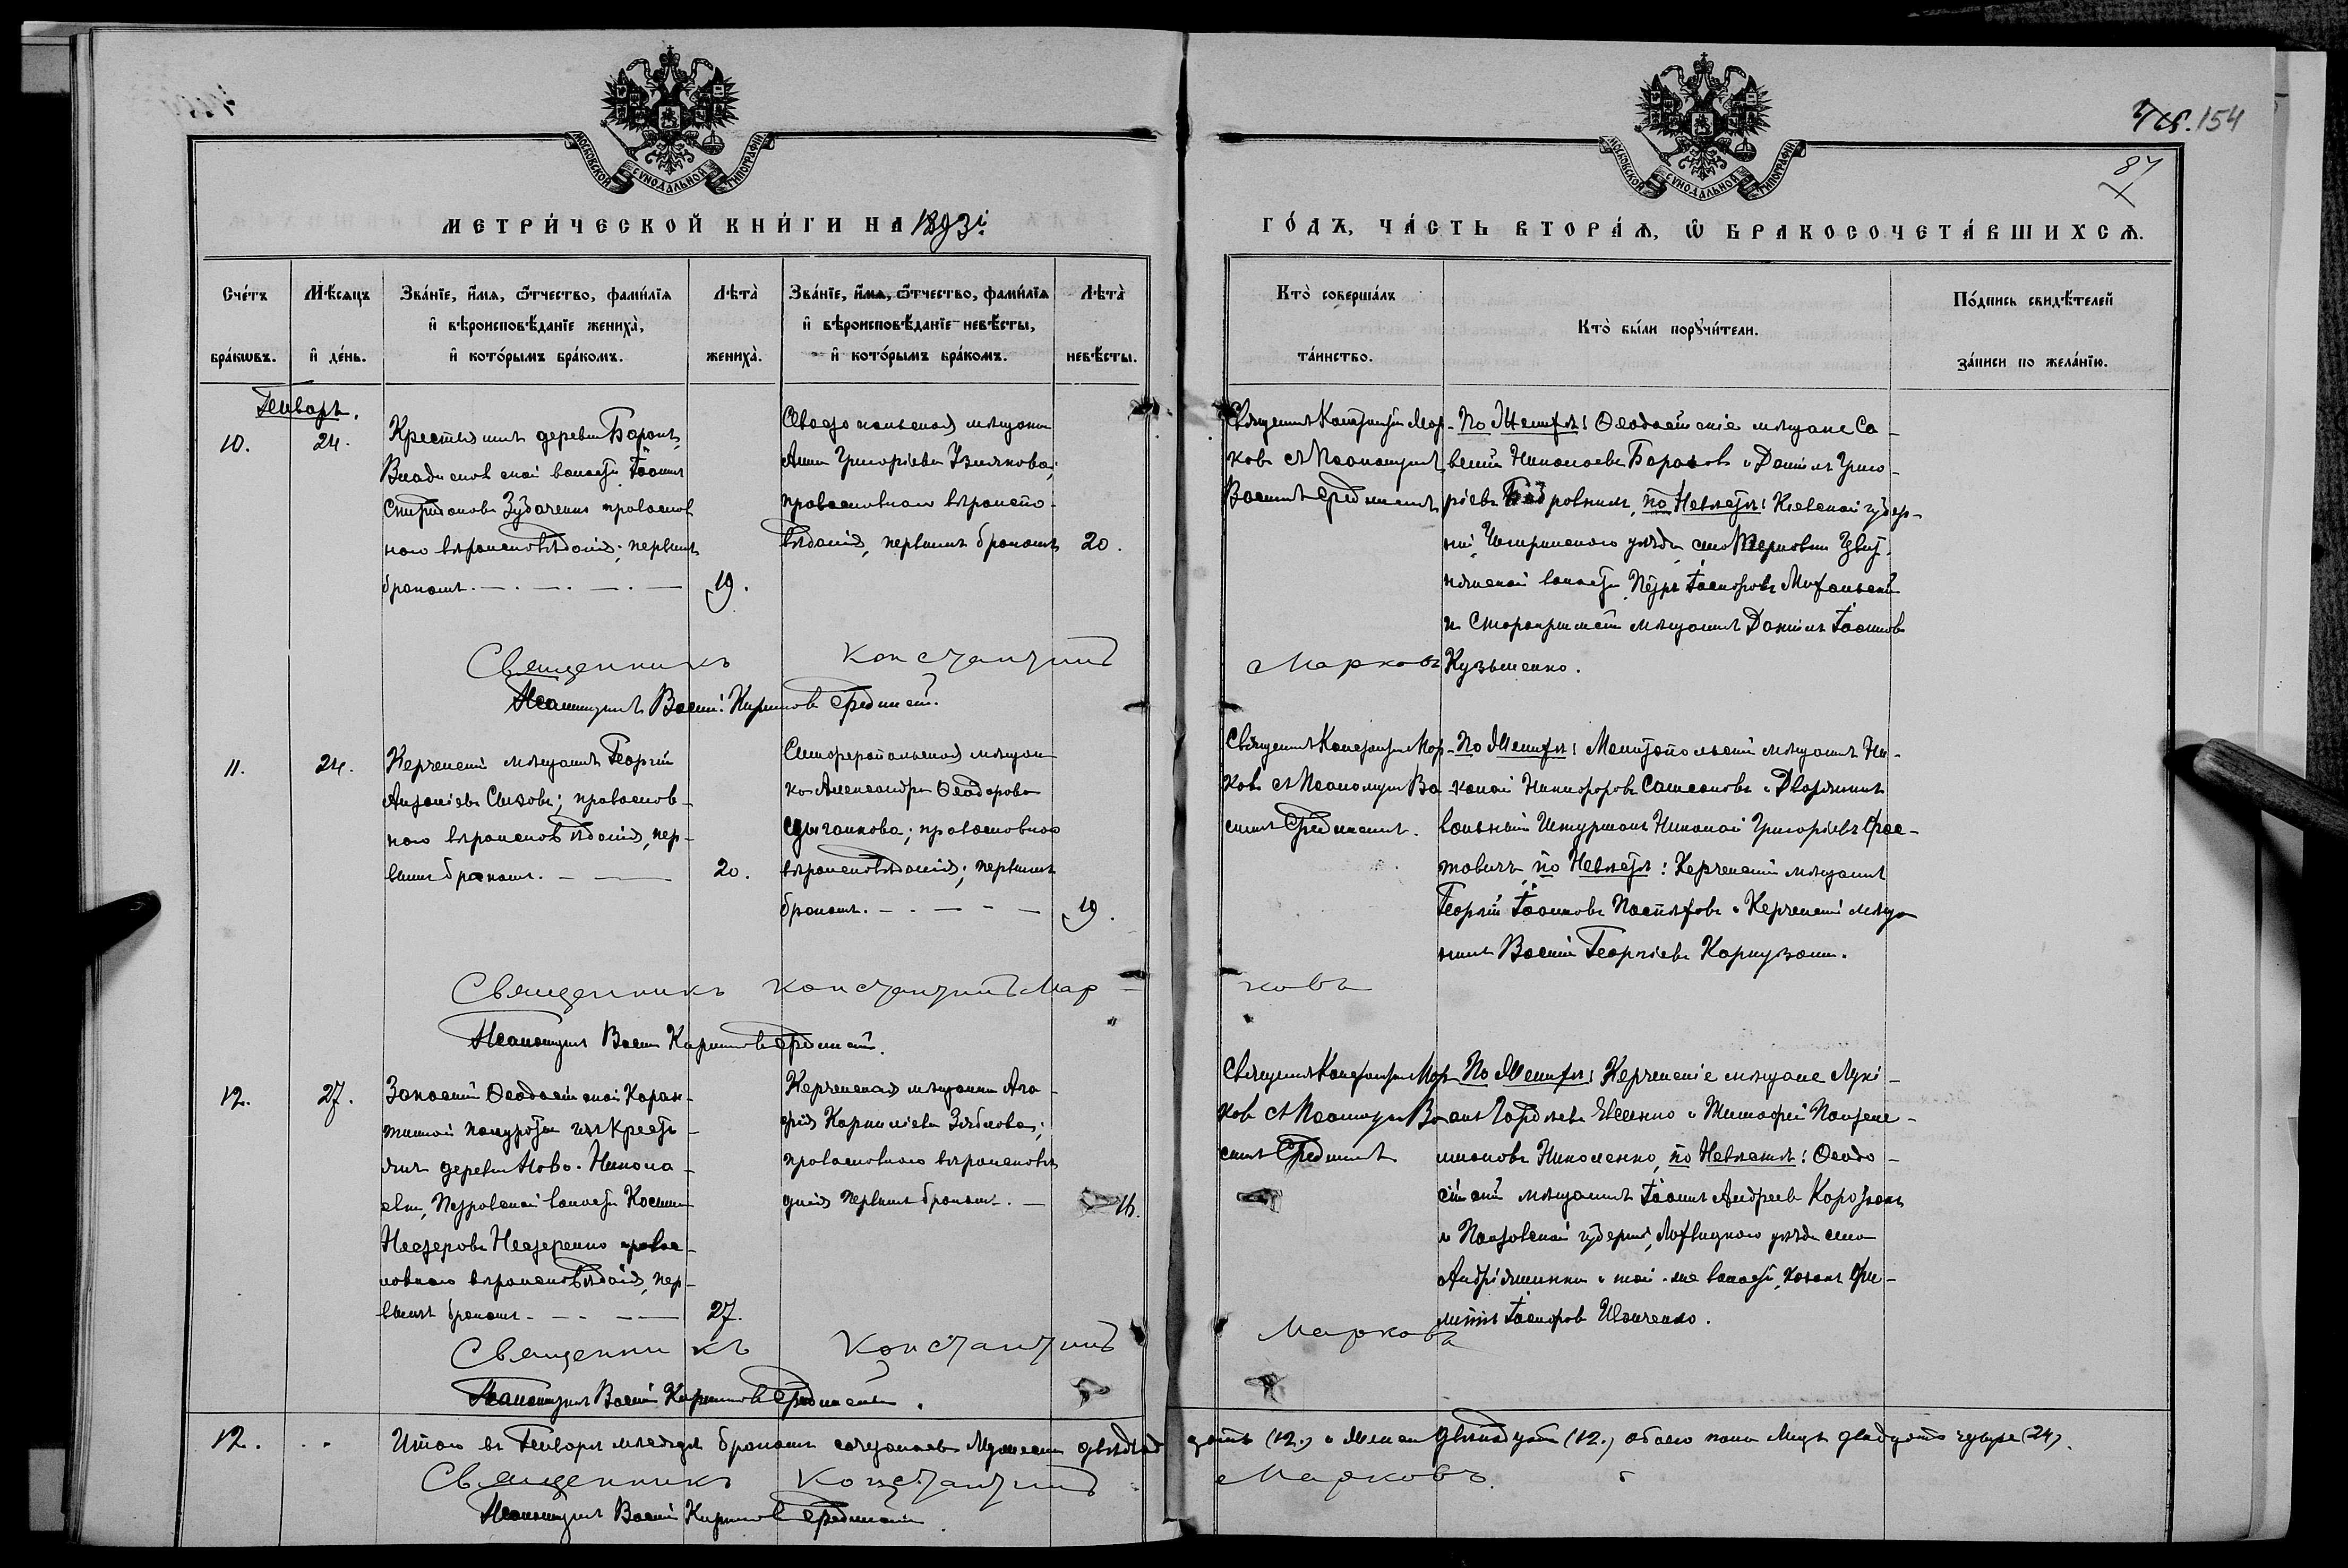 МОСКОВСКОЙ СѴНОДАЛЬНОЙ ТИПОГРАФІИ
МОСКОВСКОЙ СѴНОДАЛЬНОЙ ТИПОГРАФІИ
154
87
МЕТРИ́ЧЕСКОЙ КНИ́ГИ НА 1893й
ГО́ДЪ, ЧА́СТЬ ВТОРА́Ѧ, Ѡ҆ БРАКОСОЧЕТА́ВШИХСѦ.
Сче́тъ бра́кѡвъ.
Мѣ́сѧцъ и҆ де́нь.
Зва́нїе, и҆́мѧ, ѻ҆́тчество, фами́лїѧ
и҆ вѣроисповѣ́данїе жениха̀,
и҆ кото́рымъ бра́комъ.
Лѣта̀ жениха̀.
Зва́нїе, и҆́мѧ, ѻ҆́тчество, фами́лїѧ
и҆ вѣроисповѣ́данїе невѣ́сты,
и҆ кото́рымъ бра́комъ.
Лѣта̀ невѣ́сты.
Кто̀ соверша́лъ та́инство.
Кто̀ бы́ли порꙋчи́тели.
По́дпись свидѣ́телей
за́писи по жела́нїю.
Генварь.
10.
24.
Крестьянинъ деревни Баронъ,
Владиславской волости Іоаннъ
Спиридоновъ Зудаченко православ
наго вѣроисповѣданія; первымъ
бракомъ.
19.
Севастопольская мѣщанка
Анна Григоріева
православнаго вѣроиспо-
вѣданія, первымъ бракомъ
20.
Священникъ Константинъ Мар-
ковъ съ Псаломщикомъ
Василіемъ
По Женихѣ: Ѳеодосійскіе мѣщане Са-
велій Николаевъ и Даніилъ Григо-
ріевъ по Невѣстѣ: Кіевской губер-
ніи, Чигиринскаго уѣзда села Терновки
волости, Петръ
и Старокрымскій мѣщанинъ Даніилъ Іоанновъ
Кузьменко.
Священникъ Константинъ Марковъ
Псаломщикъ Василій
11.
24.
Керченскій мѣщанинъ Георгій
Антоніевъ православ-
наго вѣроисповѣданія, пер-
вымъ бракомъ.
20.
Симферопольская мѣщан
ка Александра Ѳеодорова
Цыганкова; православнаго
вѣроисповѣданія; первымъ
бракомъ.
19.
Священникъ Константинъ Мар-
ковъ съ Псаломщикомъ Ва-
силіемъ
По Женихѣ: Мелитопольскій мѣщанинъ Ни-
колай Никифоровъ Самсоновъ и Дворянинъ
вольный Штурманъ Николай Григоріевъ
по Невѣстѣ: Керченскій мѣщанинъ
Георгій Іоанновъ и Керченскій мѣща
нинъ Василій Георгіевъ
Священникъ Константинъ Мар-
ковъ
Псаломщикъ Василій
12.
27.
Ѳеодосійской Каран-
тинной изъ Кресть-
янъ деревни Ново-Никола-
евки, Петровской волости Косьма
Несторовъ Нестеренко право-
славнаго вѣроисповѣданія, пер-
вымъ бракомъ
27.
Керченская мѣщанка Ага-
фія Корниліева Зяблова;
православнаго вѣроисповѣ
данія первымъ бракомъ.
16.
Священникъ Константинъ Мар-
ковъ съ Псаломщикомъ Ва-
силіемъ
По Женихѣ: Керченскіе мѣщане Лукі-
анъ Евсенко и Тимофей Пантеле-
имоновъ Николенко, по Невѣстѣ: Ѳеодо-
сійскій мѣщанинъ Іоаннъ Андреевъ
и Полтавской губерніи, Лохвицкаго уѣзда села
Андріяшевки и той-же волости, козакъ Фи-
липпъ Іосифовъ Иванченко.
Священникъ Константинъ Марковъ
Псаломщикъ Василій
12.
Итого въ Генварѣ мѣсяцѣ бракомъ сочеталось Мужеска двѣнад
цать (12.) и Женска двѣнадцать (12.) обоего пола лицъ двадцать четыре (24).
Священникъ Константинъ Марковъ.
Псаломщикъ Василій